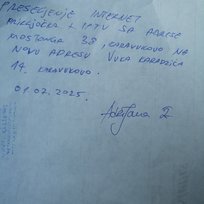 PRESELJENJE INTERNET
PRIKLJUČKA I IPTV SA ADRESE
MOSTONGA 38, KARAVUKOVO NA
NOVU ADRESU VUKA KARADŽIĆA
14. KARAVUKOVO.
01.07.2025.